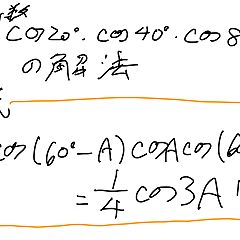 数
cos20°・cos40°・cos8
の解法
cos(60°-A)cosAcos(6
=1/4 cos3A